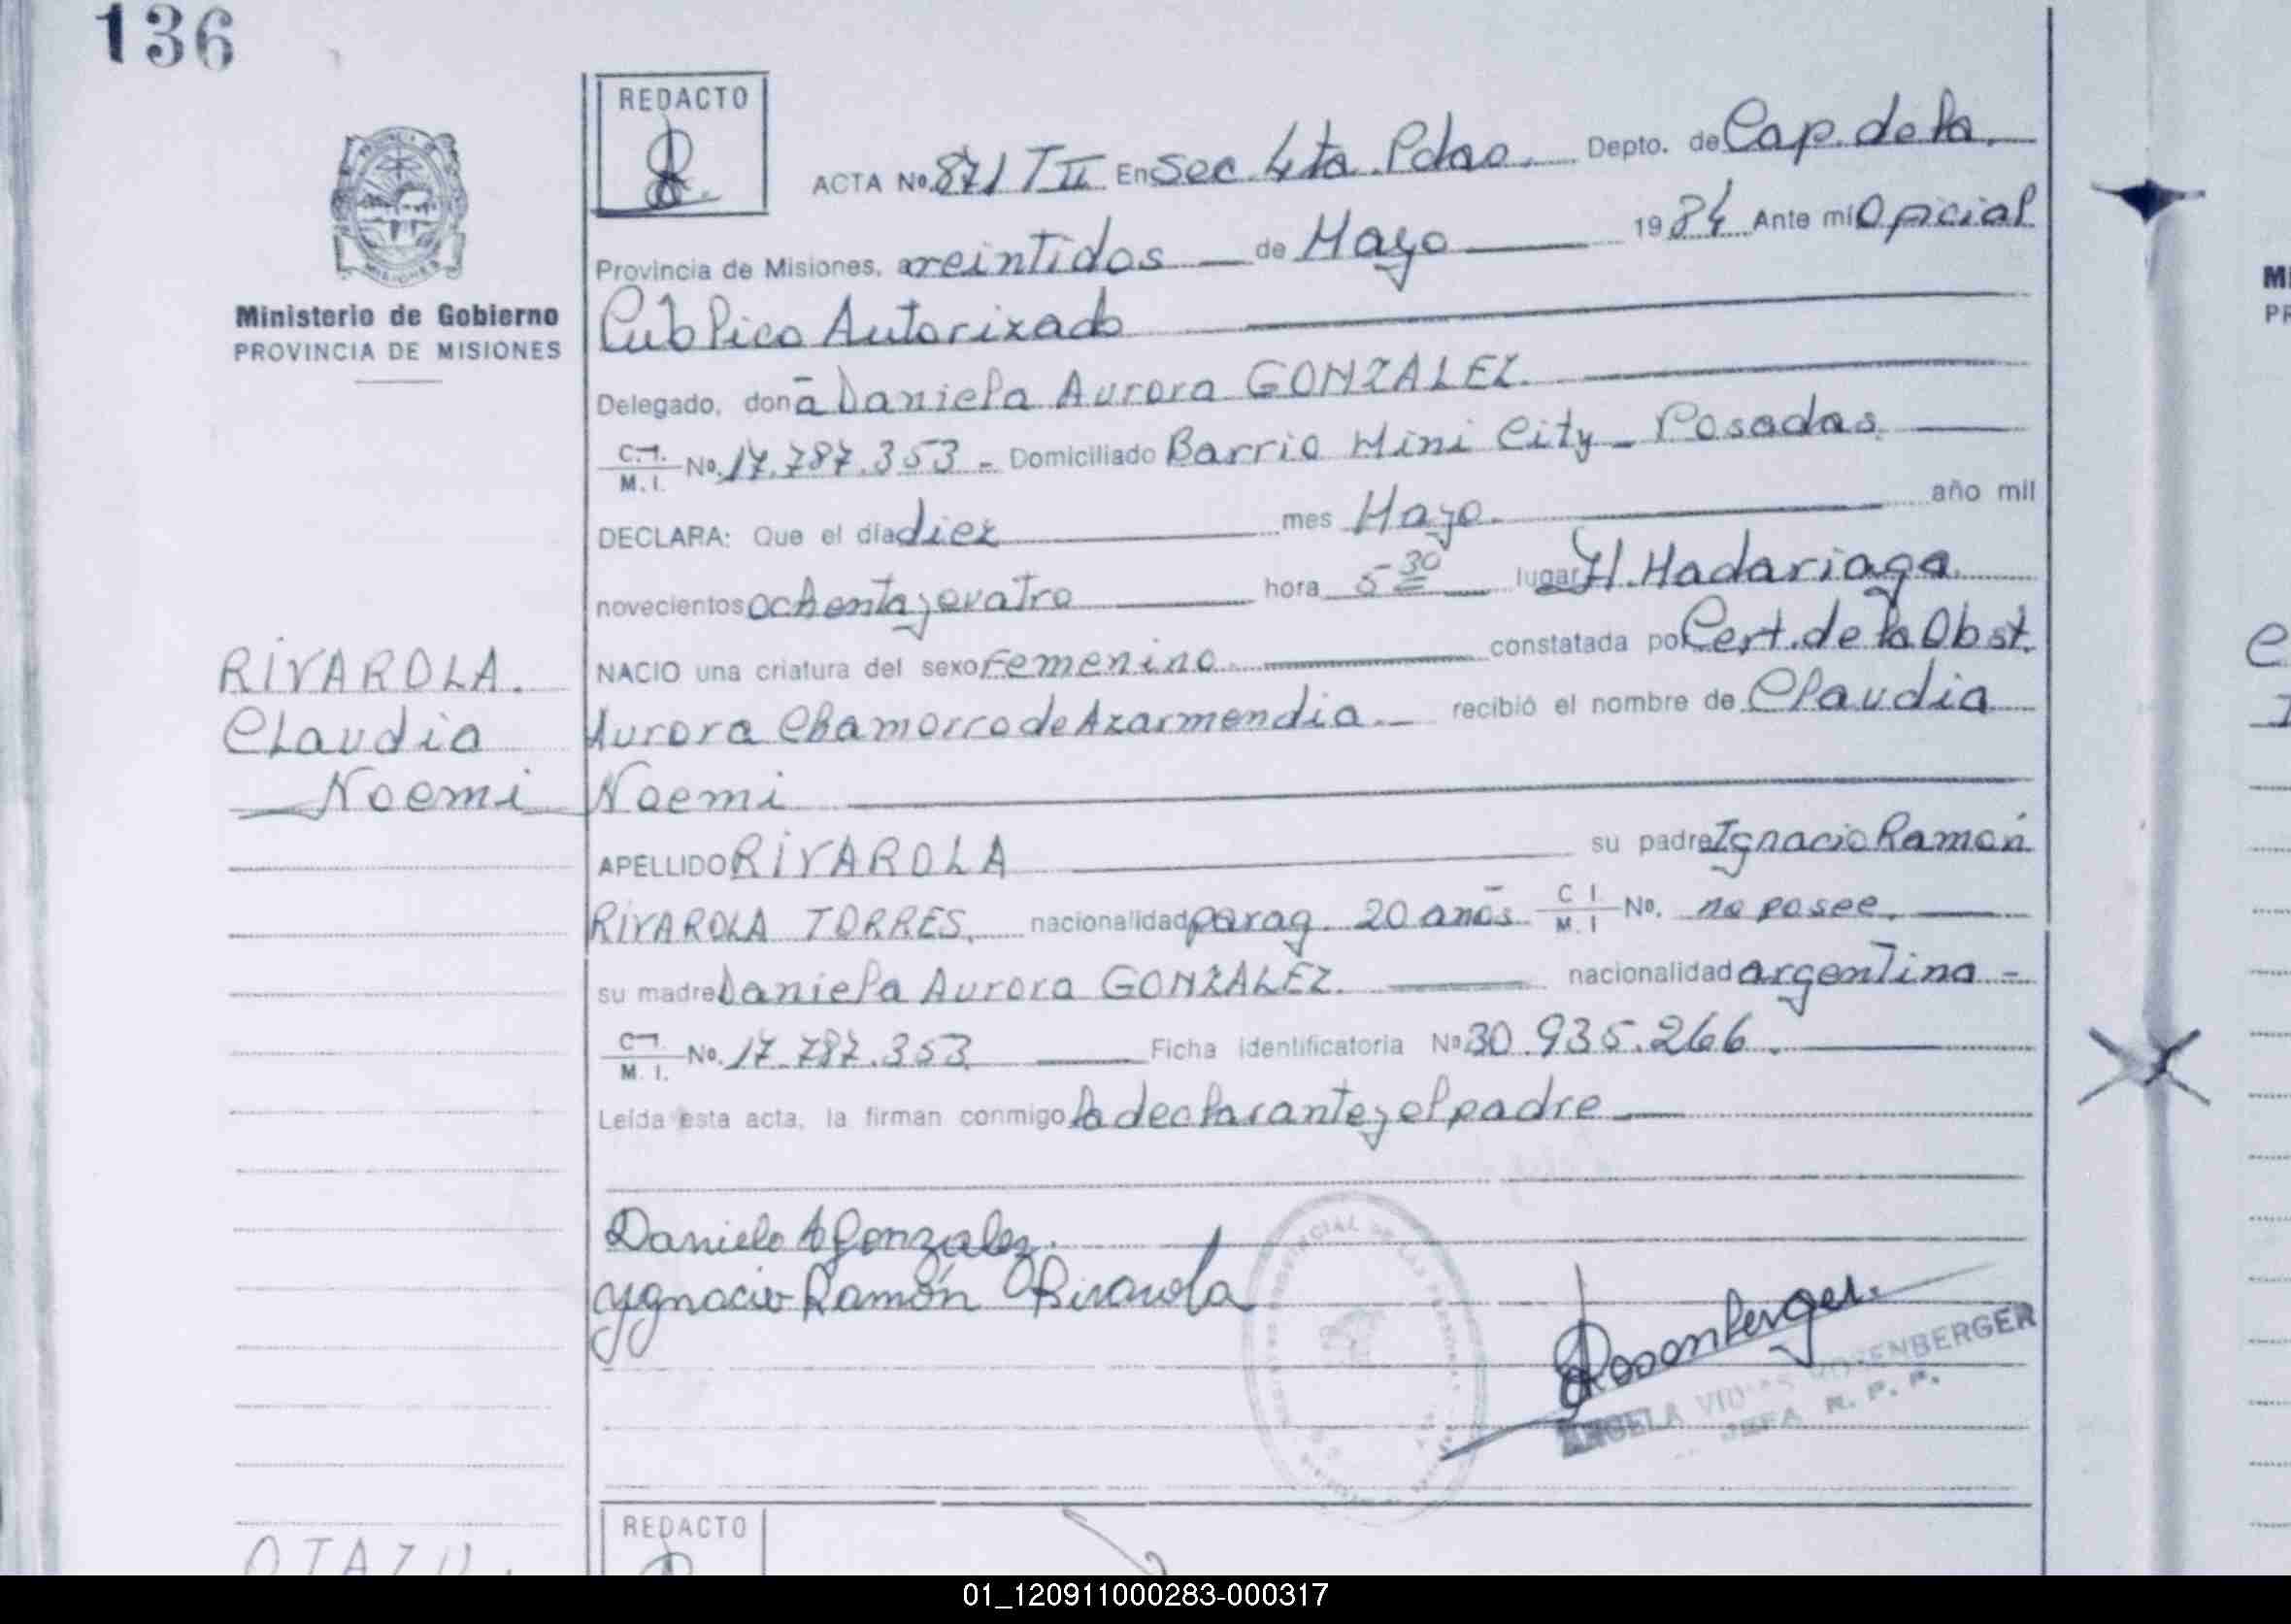 136
REDACTO
ACTA No. 871 T II En Sec. 4ta. Pdas. Depto. de Cap. de la
Provincia de Misiones, a veintidos de Mayo 1984 Ante mi Oficial
Público Autorizado
Ministerio de Gobierno
PROVINCIA DE MISIONES
Delegado, doña Daniela Aurora GONZALEZ.
C.I. M.I. No. 17.787.353 - Domiciliado Barrio Mini City - Posadas
DECLARA: Que el día diez mes Mayo. año mil
novecientos ochenta y cuatro hora 5 30 lugar H. Madariaga
NACIO una criatura del sexo Femenino constatada por Cert. de la Obst.
Aurora Chamorro de Azarmendia. recibió el nombre de Claudia
Noemi
RIVAROLA.
Claudia
Noemi
APELLIDO RIVAROLA su padre Ignacio Ramón
RIVAROLA TORRES. nacionalidad parag. 20 años C I M. I No. no posee.
su madre Daniela Aurora GONZALEZ. nacionalidad argentina -
C.I. M. I. No. 17.787.353 Ficha identificatoria No 30.935.266.
Leída esta acta, la firman conmigo la declarante y el padre
Daniela A Gonzalez.
Ygnacio Ramón Rivarola
Rosenberger.
ANGELA ROSENBERGER
JEFA R. P. P.
REDACTO
OTAZU.
01_120911000283-000317